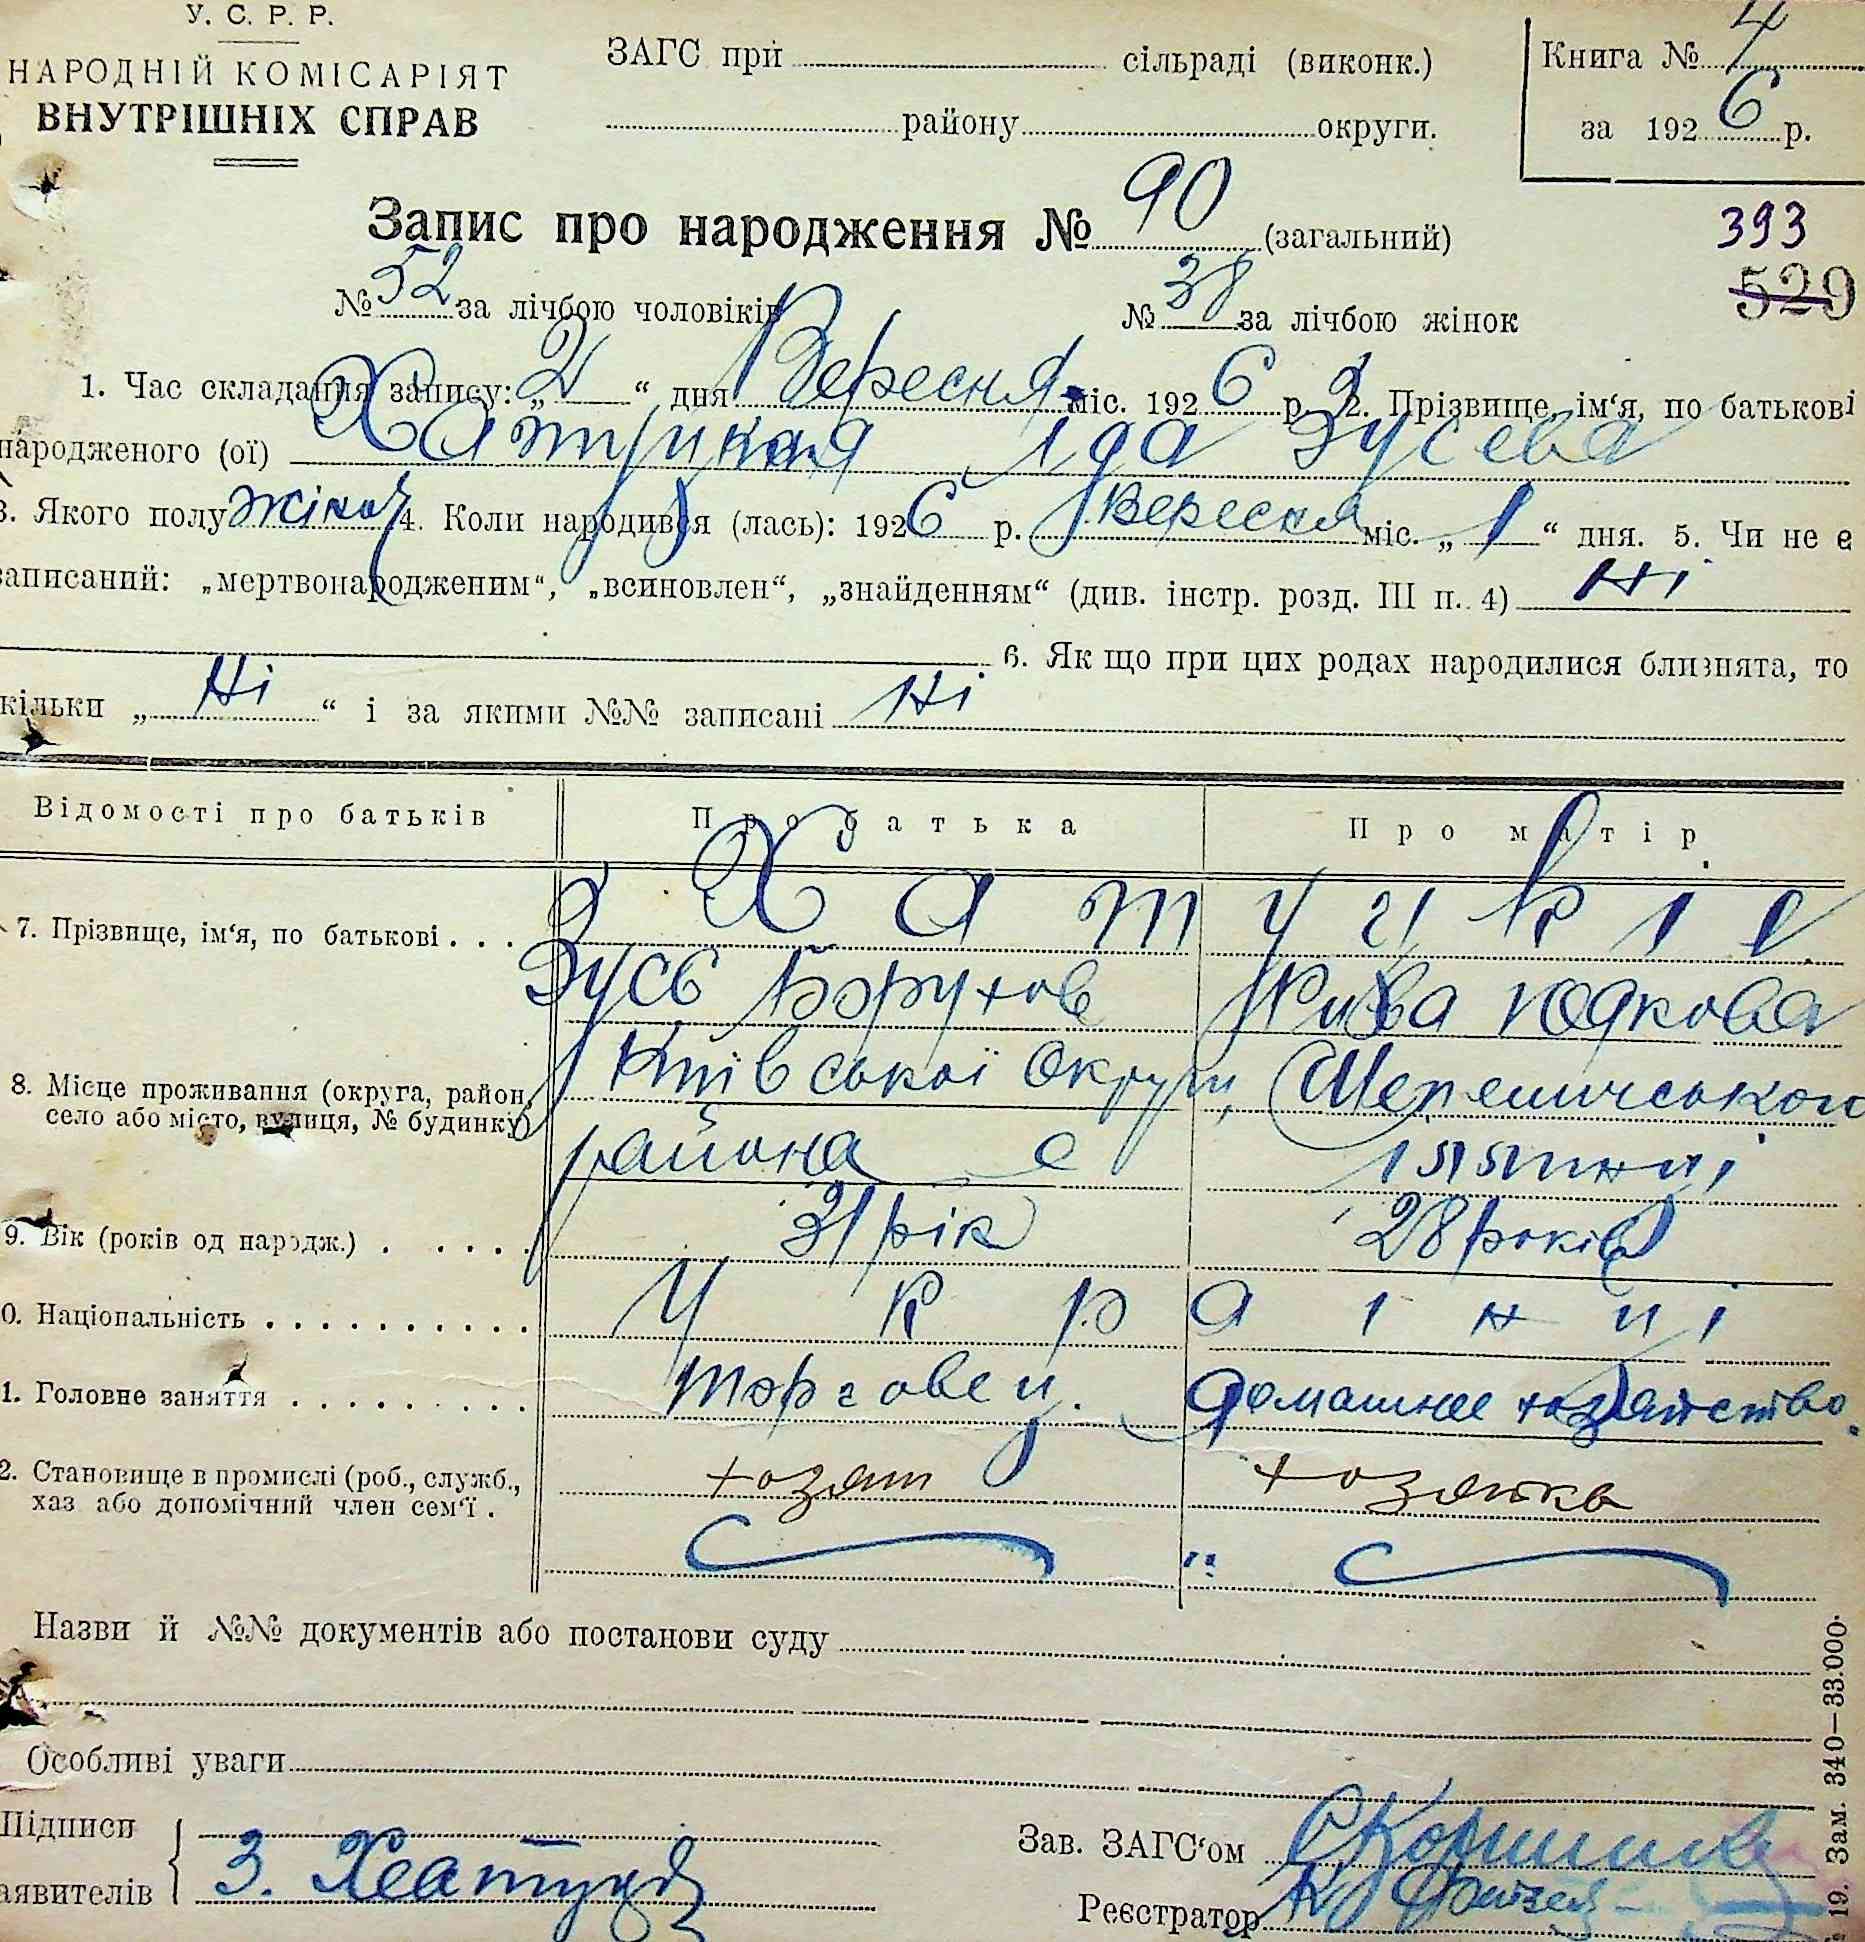 У. С. Р. Р.
НАРОДНІЙ КОМІСАРІЯТ
ВНУТРІШНІХ СПРАВ
ЗАГС при сільраді (виконк.)
району округи.
Книга № 4
за 1926 р.
Запис про народження № 90 (загальний)
393
529
№ 52 за лічбою чоловіків № 38 за лічбою жінок
1. Час складання запису: „2“ дня Вересня міс. 1926 р. 2. Прізвище, ім‘я, по батькові
народженого (ої) Хатуцкая Іда Зусева
3. Якого полу жіноч 4. Коли народився (лась): 1926 р. Вересня міс. „1“ дня. 5. Чи не є
записаний: „мертвонародженим“, „всиновлен“, „знайденням“ (див. інстр. розд. III п. 4) Ні
6. Як що при цих родах народилися близнята, то
кільки „Ні“ і за якими №№ записані Ні
Відомості про батьків Про батька Про матір
7. Прізвище, ім‘я, по батькові . . . Хатуцкіє
Зусь Борухов Рива Юдкова
8. Місце проживання (округа, район, село або місто, вулиця, № будинку) Київської Округи,
района с
9. Вік (років од народж.) . . . . . 31 рік 28 років
0. Національність . . . . . . . . . . Українці
1. Головне заняття . . . . . . . . . торговец. домашнее хозяйство.
2. Становище в промислі (роб., служб., хаз або допомічний член сем‘ї . хозяин хозяйка
Назви й №№ документів або постанови суду
Особливі уваги
Підписи
заявителів З. Хатуцкий
Зав. ЗАГС‘ом
Реєстратор
19. Зам. 340—33.000.